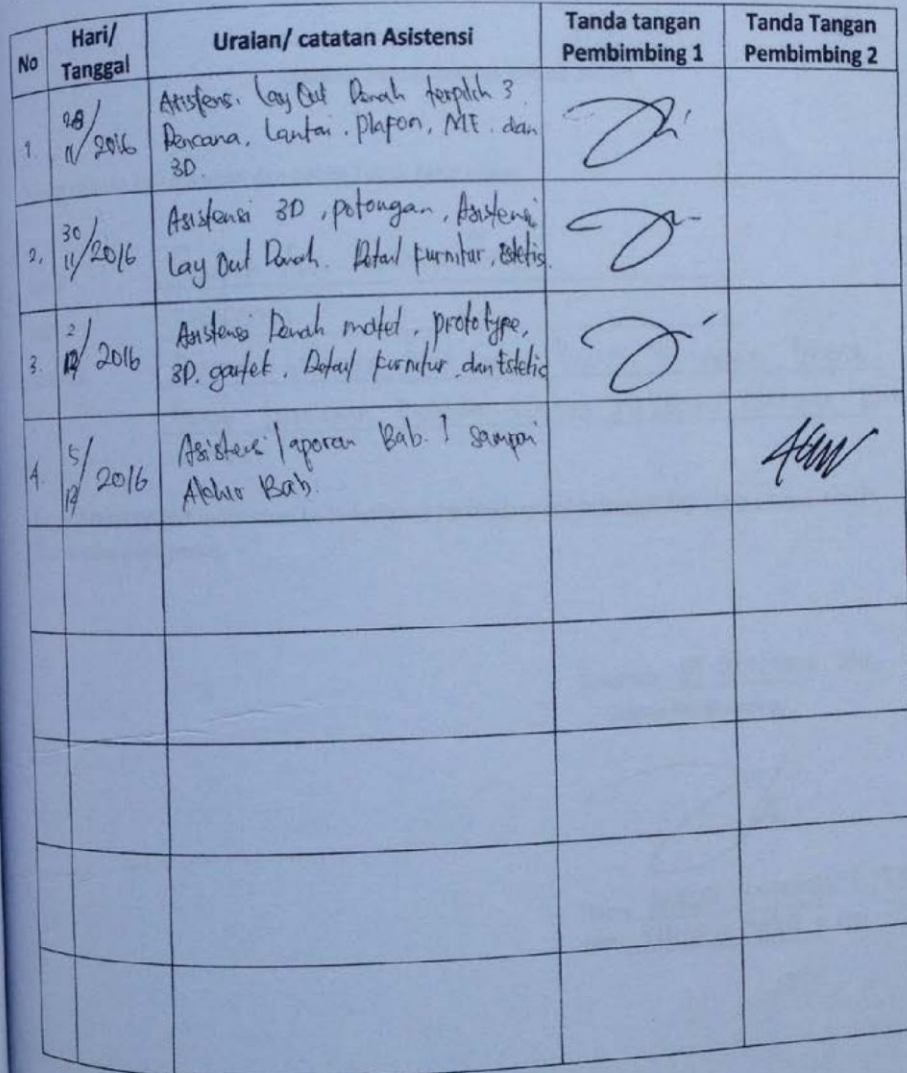 No
Hari/
Tanggal
Uraian/ catatan Asistensi
Tanda tangan
Pembimbing 1
Tanda Tangan
Pembimbing 2
1.
28/
11/2016
Asistensi Lay Out Denah terpilih 3
Rencana, Lantai. Plafon, ME. dan
3D.
2,
30
11/2016
Asistensi 3D, potongan, Asistensi
Lay Out Denah. Detail furnitur, Estetis.
3.
2/
12/ 2016
Asistensi Denah maket, prototype,
3D. Detail furnitur dan Estetic
4.
5/
12/ 2016
Asistensi laporan Bab. I sampai
Akhir Bab.